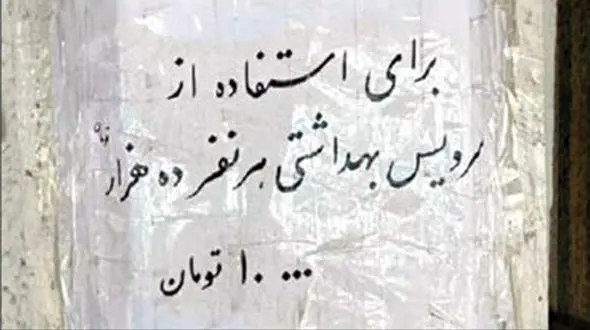 برای استفاده از
سرویس بهداشتی هر نفر ده هزار تومان
۱۰۰۰۰ تومان